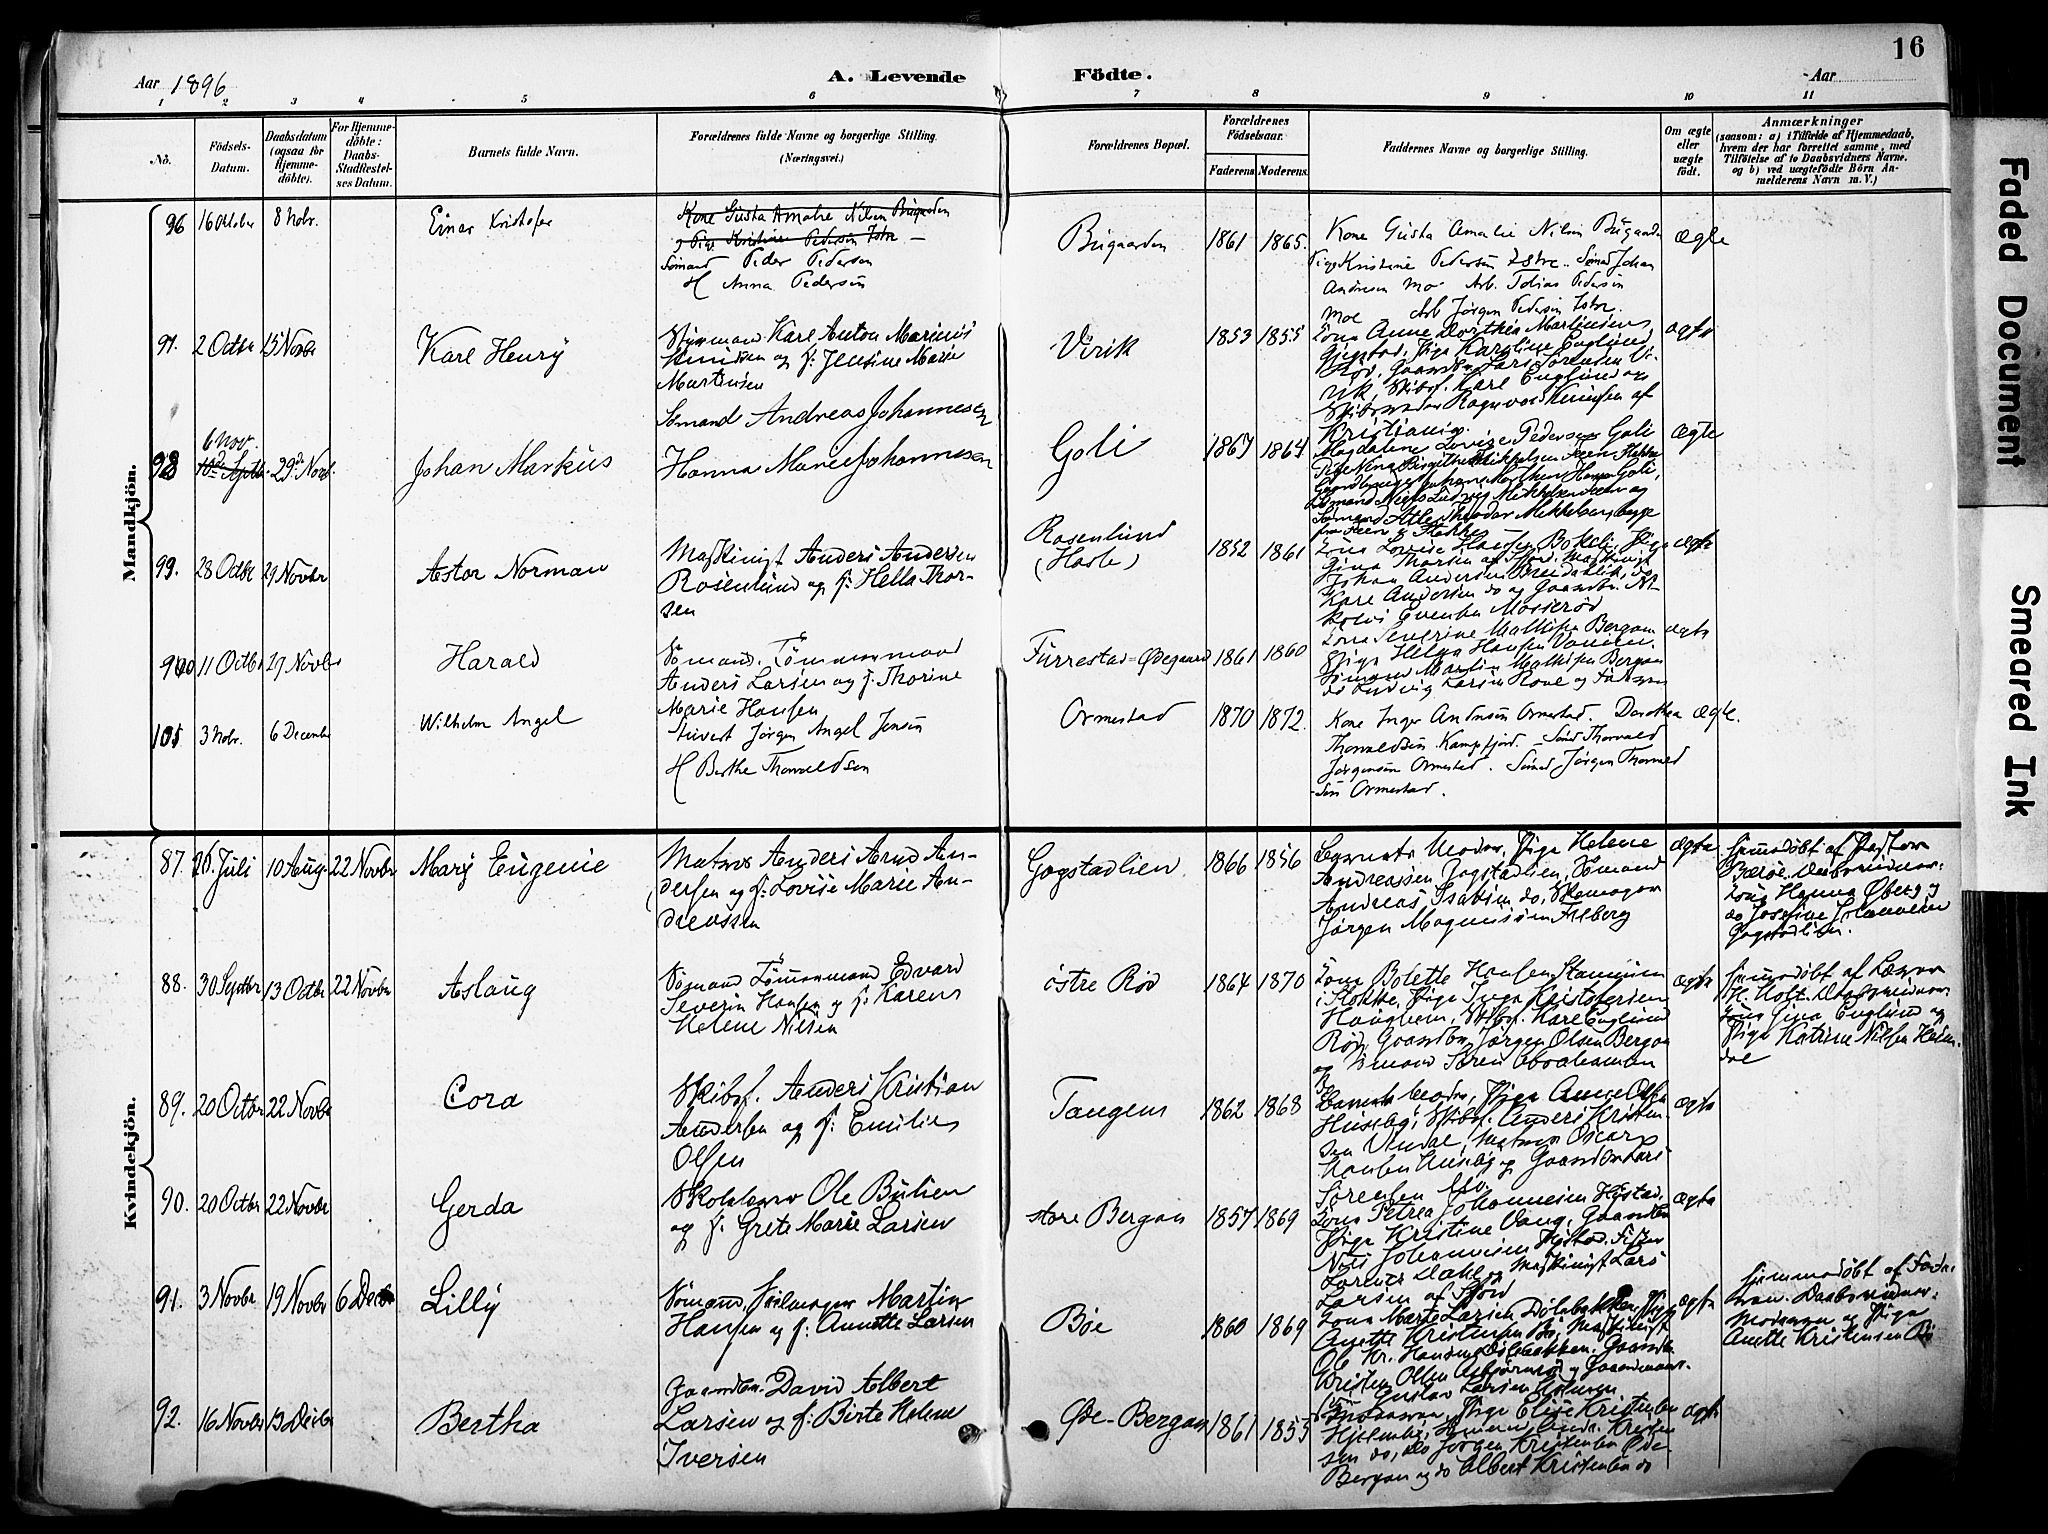 16
Aar 1896
A. Levende Födte.
Aar
1 2 3 4 5 6 7 8 9 10 11
No.
Födsels-
Datum.
Daabsdatum
(ogsaa for
Hjemme-
döbte).
For Hjemme-
döbte:
Daabs-
Stadfæstel-
ses Datum.
Barnets fulde Navn.
Forældrenes fulde Navne og borgerlige Stilling.
(Næringsvei.)
Forældrenes Bopæl.
Forældrenes
Födselsaar.
Faderens
Moderens.
Faddernes Navne og borgerlige Stilling.
Om ægte
eller
uægte
født.
Anmærkninger
(saasom: a) i Tilfælde af Hjemmedaab,
hvem der har forrettet samme, med
Tilföielse af to Daabsvidners Navne,
og b) ved uægtefödte Börn An-
melderens Navn m. V.)
Mandkjön.
96 16 Oktober 8 Nobr.
Einar Kristofer
Kone Gusta Amalie Nilsen Bugaarden
Pige Kristine Pedersen Istre
Sömand Peder Pedersen
H Anna Pedersen
Bugaarden 1861 1865.
Kone Gusta Amalie Nilsen Bugaarden
Pige Kristine Pedersen Istre. Sömd Johan
Andresen Moe Arb. Tobias Pedersen
Moe Arb Jørgen Pedersen Istre.
Ægte
97. 2 Octbr 15 Novbr
Karl Henry
Styrmand Karl Anton Marinius
Knudsen og h: Jensine Marie
Martinsen
Virik 1853 1855
Kona Anne Dorthea Martinsen
Gjegstad, Pige Karoline Englund,
Rød, Gaardbr. Lars Sørensen Vi-
rik, Skibsf. Karl Englund og
Ragnvald Knudsen af
Kristiania.
ægte
98 6 Nov. 29 Novb.
Johan Markus
Sömand Andreas Johannesen
Hanna Marie Johannesen
Goli 1867 1864
Magdalene Lovise Pedersen Goli
Ægte
99. 28 Octbr 29 Novbr
Astor Norman
Maskinist Anders Andersen
Rosenlund og h: Hella Thor-
sen
Rosenlund
(Hasle)
1852 1861
Kona Lovise Hansen Bokeli, Pige
Gina Thorsen af Fjord, Maskinist
Johan Andersen
Karl Andersen do og Gaardbr.
Evensen Moserød
ægte
100 11 Octbr 29 Novbr
Harald
Sömand, Tømmermand
Anders Larsen og h: Thorine
Marie Hansen
Furrestad=Ødegaard 1861 1860
Kona Severine Mathisen Bergan
Pige Helga Hansen
Sømand Martin Mathisen Bergan
do Ludvig Larsen
ægte
101 3 Nobr. 6 December
Wilhelm Angel
Jørgen Angel Jensen
H Berthe Thorvaldsen
Ormestad 1870 1872.
Kone Inger Andersen Ormestad. Dorothea
Thorvaldsen Kampfjord. Sömd Thorvald
Jørgensen Ormestad. Sömd Jørgen Thorvald
sen Ormestad.
Ægte.
Kvindekjön.
87. 26. Juli 10 Aug. 22 Novbr
Mary Eugenie
Matros Anders Arnd An-
dersen og h: Lovise Marie An-
dreassen
Gogstadlien 1866 1856
Barnets Moder, Pige Helene
Andreassen Gogstadlien, Sömand
Andreas Isaksen do, Skomager
Jørgen Magnussen Freberg
ægte
Hjemmedøbt af Pastor
Bærøe. Daabsvidner:
Kona Hanna Øberg og
do Josefine Johannesen
Gogstadlien.
88. 30 Septbr 13 Octbr 22 Novbr
Aslaug
Sömand Tømmermand Edvard
Severin Hansen og h: Karen
Helene Nilsen
østre Rød 1864 1870
Kona Bolette Hansen
i Stokke, Pige Inga Kristofersen
Haugben, Skibsf. Karl Englund
Rød, Gaardbr. Jørgen Olsen Bergan
og Sømand Søren Abrahamsen
ægte
Hjemmedøbt af Lærer
H. Holt. Daabsvidner:
Kona Gina Englund og
Pige Katrine Nilsen Heim-
dal
89. 20 Octbr 22 Novbr
Cora
Skibsf. Anders Kristian
Andersen og h: Emilie
Olsen
Tangen 1862 1868
Barnets Moder, Pige Anne Olsen
Huseby, Skibsf. Anders Kristen-
sen Vindal, Matros Oscar
Hansen Huseby og Gaardbr. Lars
Sørensen
ægte
90. 20 Octbr 22 Novbr
Gerda
Skolelærer Ole Bulien
og h: Grete Marie Larsen
store Bergan 1857 1869
Kona Petrea Johannesen Hystad,
Pige Kristine Vang, Gaardbr.
Nils Johannesen Hystad, Fisker
Laurits Dahl og Maskinist Lars
Larsen af Fjord
ægte
91. 3 Novbr 19 Novbr 6 Decbr
Lilly
Sömand, Seilmager Martin
Hansen og h: Annette Larsen
Bøe 1860 1869
Kona Marie Larsen Dølebakken, Pige
Anette Kristensen Bø, Maskinist
O. Kr. Hansen Dølebakken, Gaardbr.
Kristen Olsen Asbjørnrød og Gaardmands-
søn Gustav Larsen
ægte
Hjemmedøbt af Fade-
ren. Daabsvidner:
Moderen og Pige
Anette Kristensen Bø
92. 16 Novbr 13 Decbr
Bertha
Gaardbr. David Albert
Larsen og h: Birte Helene
Iversen
Øde-Bergan 1861 1855
Pige Elise Kristensen
Kristen-
sen do, do Jørgen Kristensen Øde-
Bergan og do Albert Kristensen do
ægte
Faded Document
Smeared Ink